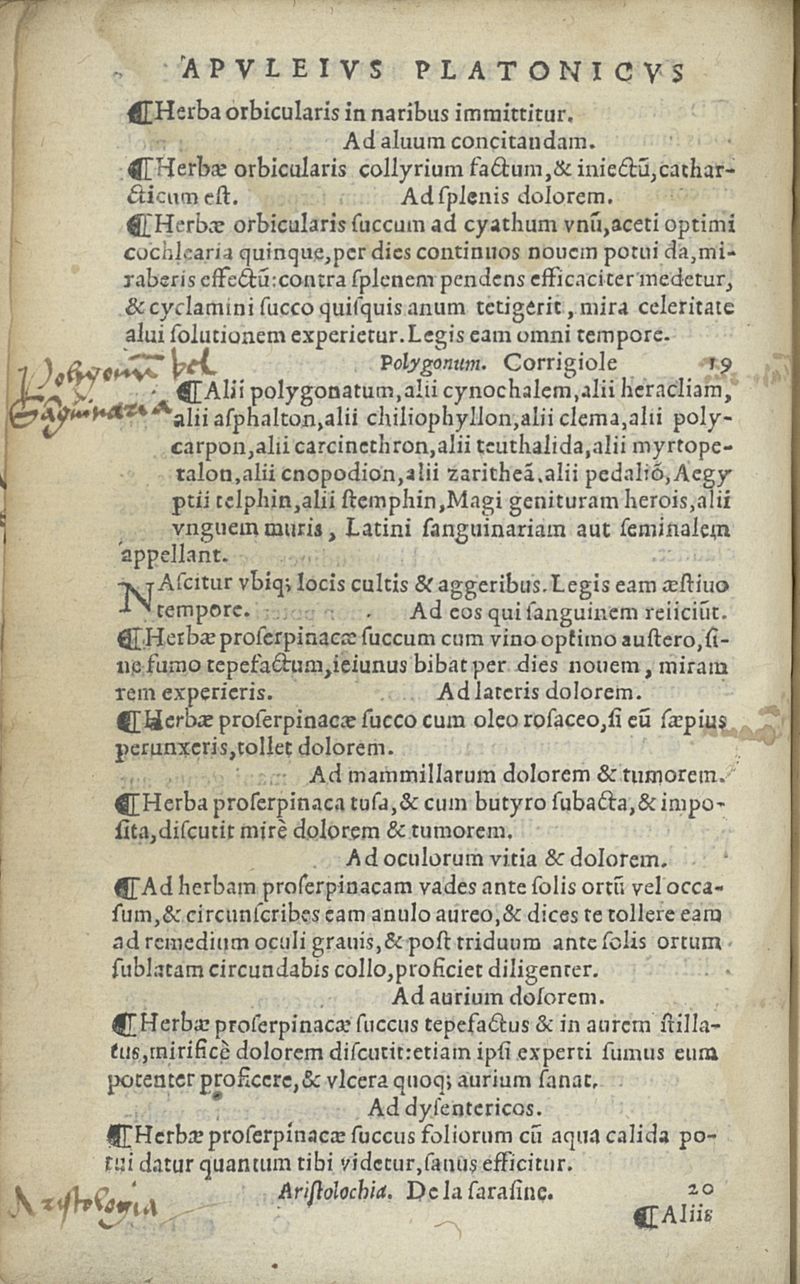 APVLEIVS PLATONICVS
¶Herba orbicularis in naribus immittitur.
Ad aluum concitandam.
¶Herbæ orbicularis collyrium factum,& iniectũ,cathar-
cticum est. Ad splenis dolorem.
¶Herbæ orbicularis succum ad cyathum vnũ,aceti optimi
cochlearia quinque,per dies continuos nouem potui da,mi-
raberis effectũ:contra splenem pendens efficaciter medetur,
& cyclamini succo quisquis anum tetigerit, mira celeritate
alui solutionem experietur.Legis eam omni tempore.
Polygonum. Corrigiole 19
Polygonũ vel
Saguinaria
¶Alii polygonatum,alii cynochalem,alii heracliam,
alii asphalton,alii chiliophyllon,alii clema,alii poly-
carpon,alii carcinethron,alii teuthalida,alii myrtope-
talon,alii cnopodion,alii zaritheã,alii pedaliõ,Aegy
ptii telphin,alii stemphin,Magi genituram herois,alii
vnguem muris, Latini sanguinariam aut seminalem
appellant.
NAscitur vbiq; locis cultis & aggeribus.Legis eam æstiuo
tempore. Ad eos qui sanguinem reiiciũt.
¶Herbæ proserpinacæ succum cum vino optimo austero,si-
ne fumo tepefactum,ieiunus bibat per dies nouem, miram
rem experieris. Ad lateris dolorem.
¶Herbæ proserpinacæ succo cum oleo rosaceo,si eũ sæpius
perunxeris,tollet dolorem.
Ad mammillarum dolorem & tumorem.
¶Herba proserpinaca tusa,& cum butyro subacta,& impo-
sita,discutit mirè dolorem & tumorem.
Ad oculorum vitia & dolorem.
¶Ad herbam proserpinacam vades ante solis ortũ vel occa-
sum,& circunscribes eam anulo aureo,& dices te tollere eam
ad remedium oculi grauis,& post triduum ante solis ortum
sublatam circundabis collo,proficiet diligenter.
Ad aurium dolorem.
¶Herbæ proserpinacæ succus tepefactus & in aurem stilla-
tus,mirificè dolorem discutit:etiam ipsi experti sumus eum
potenter proficere,& vlcera quoq; aurium sanat.
Ad dysentericos.
¶Herbæ proserpinacæ succus foliorum cũ aqua calida po-
tui datur quantum tibi videtur,sanus efficitur.
Aristolochia. De la sarasine. 20
Aristologia
¶Aliis